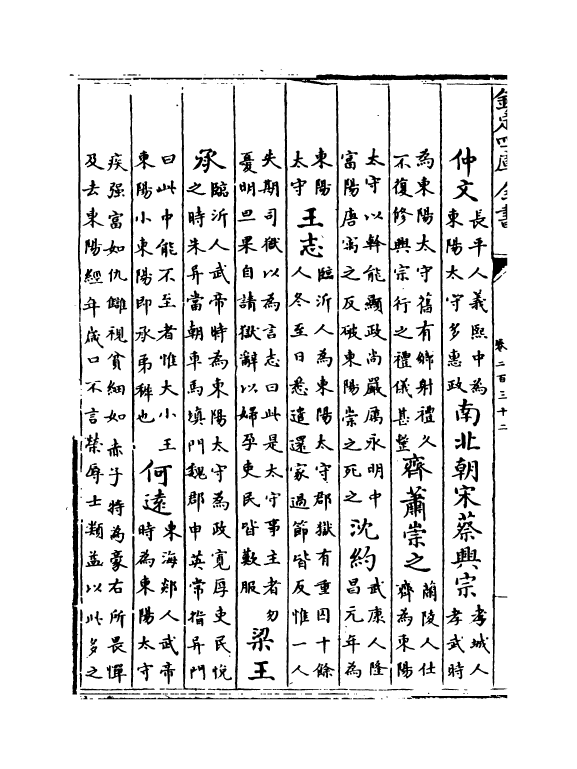 欽定四庫全書
卷二百三十二
仲文
長平人義熙中為
東陽太守多惠政
南北朝宋蔡興宗
考城人
孝武時
為東陽太守舊有鄉射禮久
不復修興宗行之禮儀甚整
齊蕭崇之
蘭陵人仕
齊為東陽
太守以幹能顯政尚嚴厲永明中
富陽唐㝢之反破東陽崇之死之
沈約
武康人隆
昌元年為
東陽
太守
王志
臨沂人為東陽太守郡獄有重囚十餘
人冬至日悉遣還家過節皆反惟一人
失期司獄以為言志曰此是太守事主者勿
憂明旦果自請獄辭以婦孕吏民皆歎服
梁王
承
臨沂人武帝時為東陽太守為政寬厚吏民悅
之時朱异當朝車馬填門魏郡申英常指异門
曰此中能不至者惟大小王
東陽小東陽即承弟穉也
何遠
東海郯人武帝
時為東陽太守
疾强富如仇讎視貧細如赤子特為豪右所畏憚
及去東陽經年歲口不言榮辱士類益以此多之